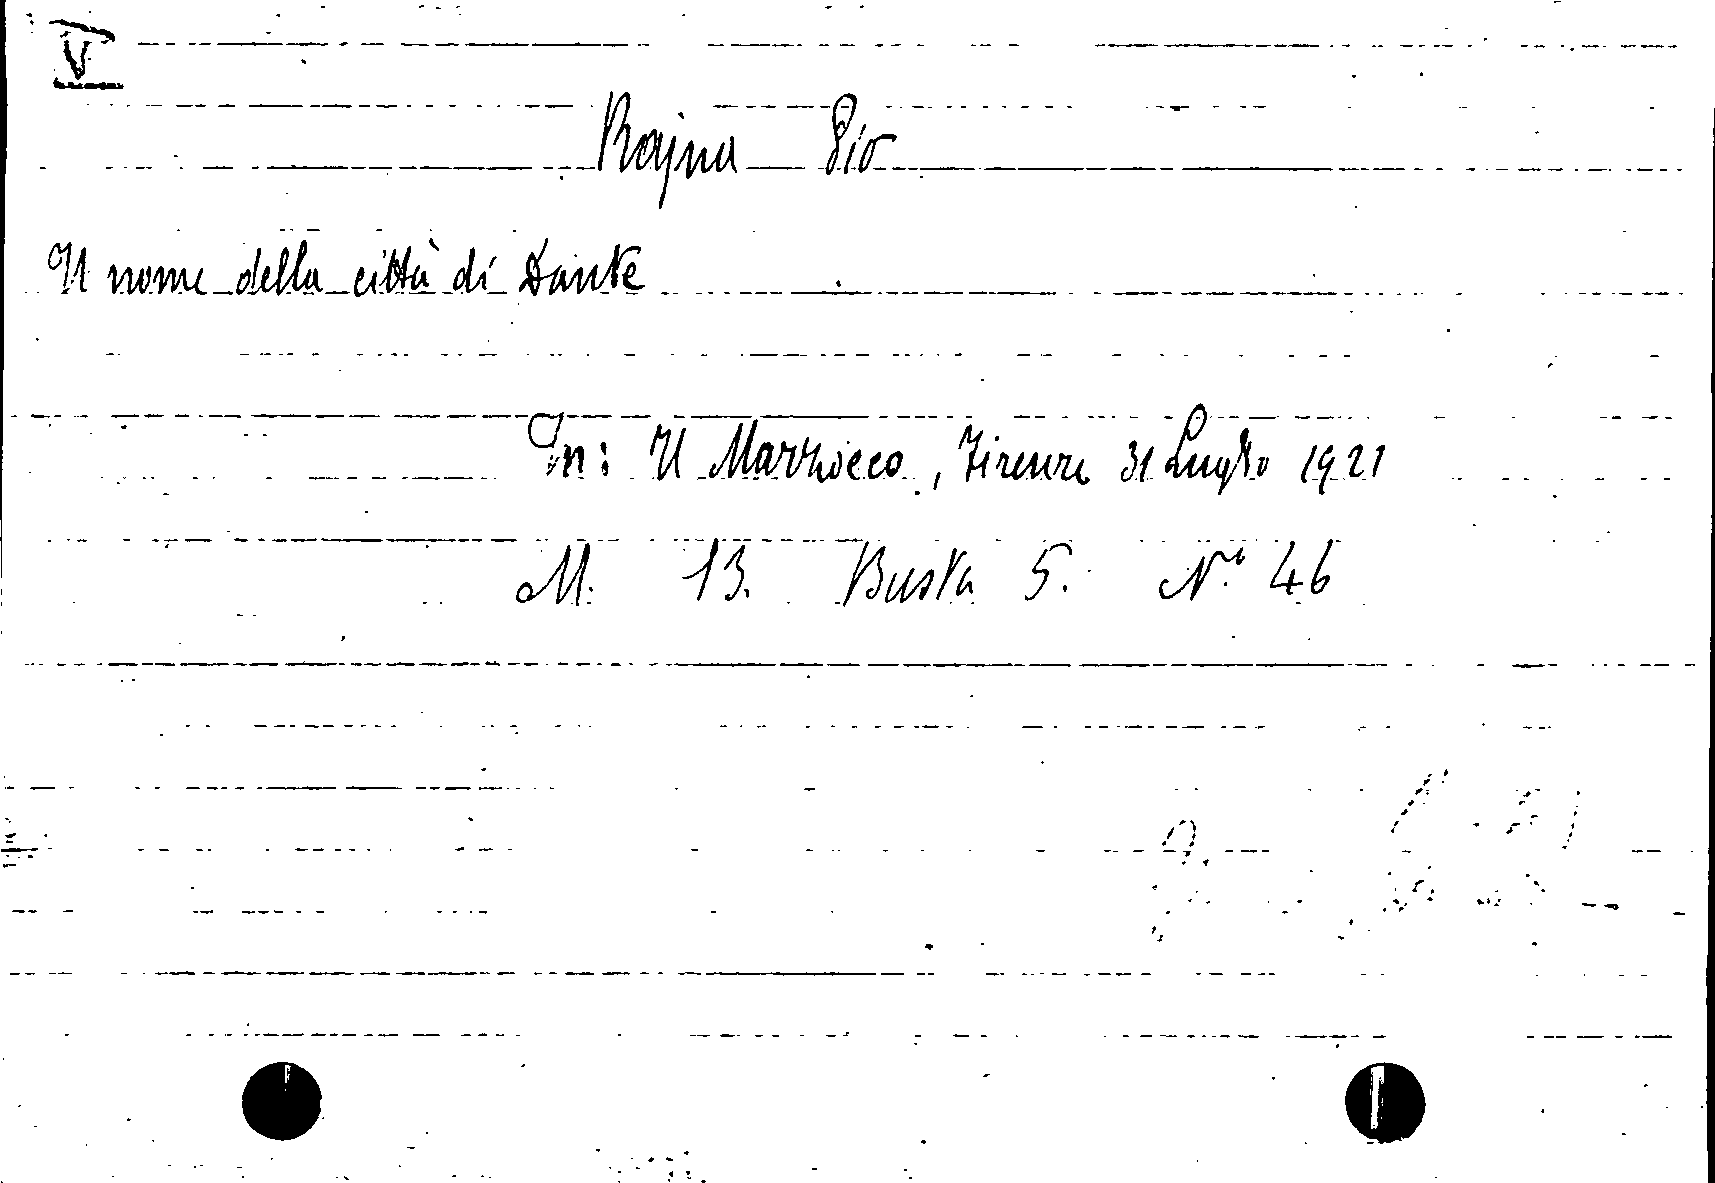 V
Rajna Pio
Il nome della città di Dante
In: Il Marzocco, Firenze 31 Luglio 1921
M. 13. Busta 5. N.° 46